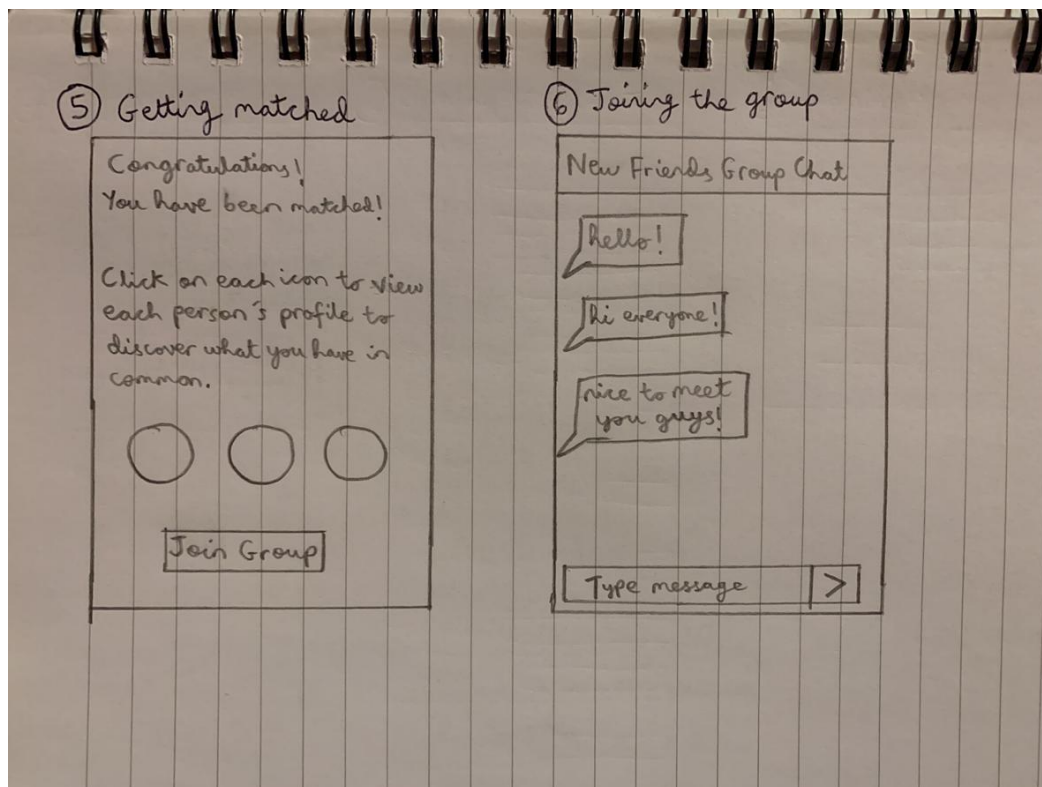 5 Getting matched
Congratulations!
You have been matched!
Click on each icon to view
each person's profile to
discover what you have in
common.
Join Group
6 Joining the group
New Friends Group Chat
hello!
hi everyone!
nice to meet
you guys!
Type message >